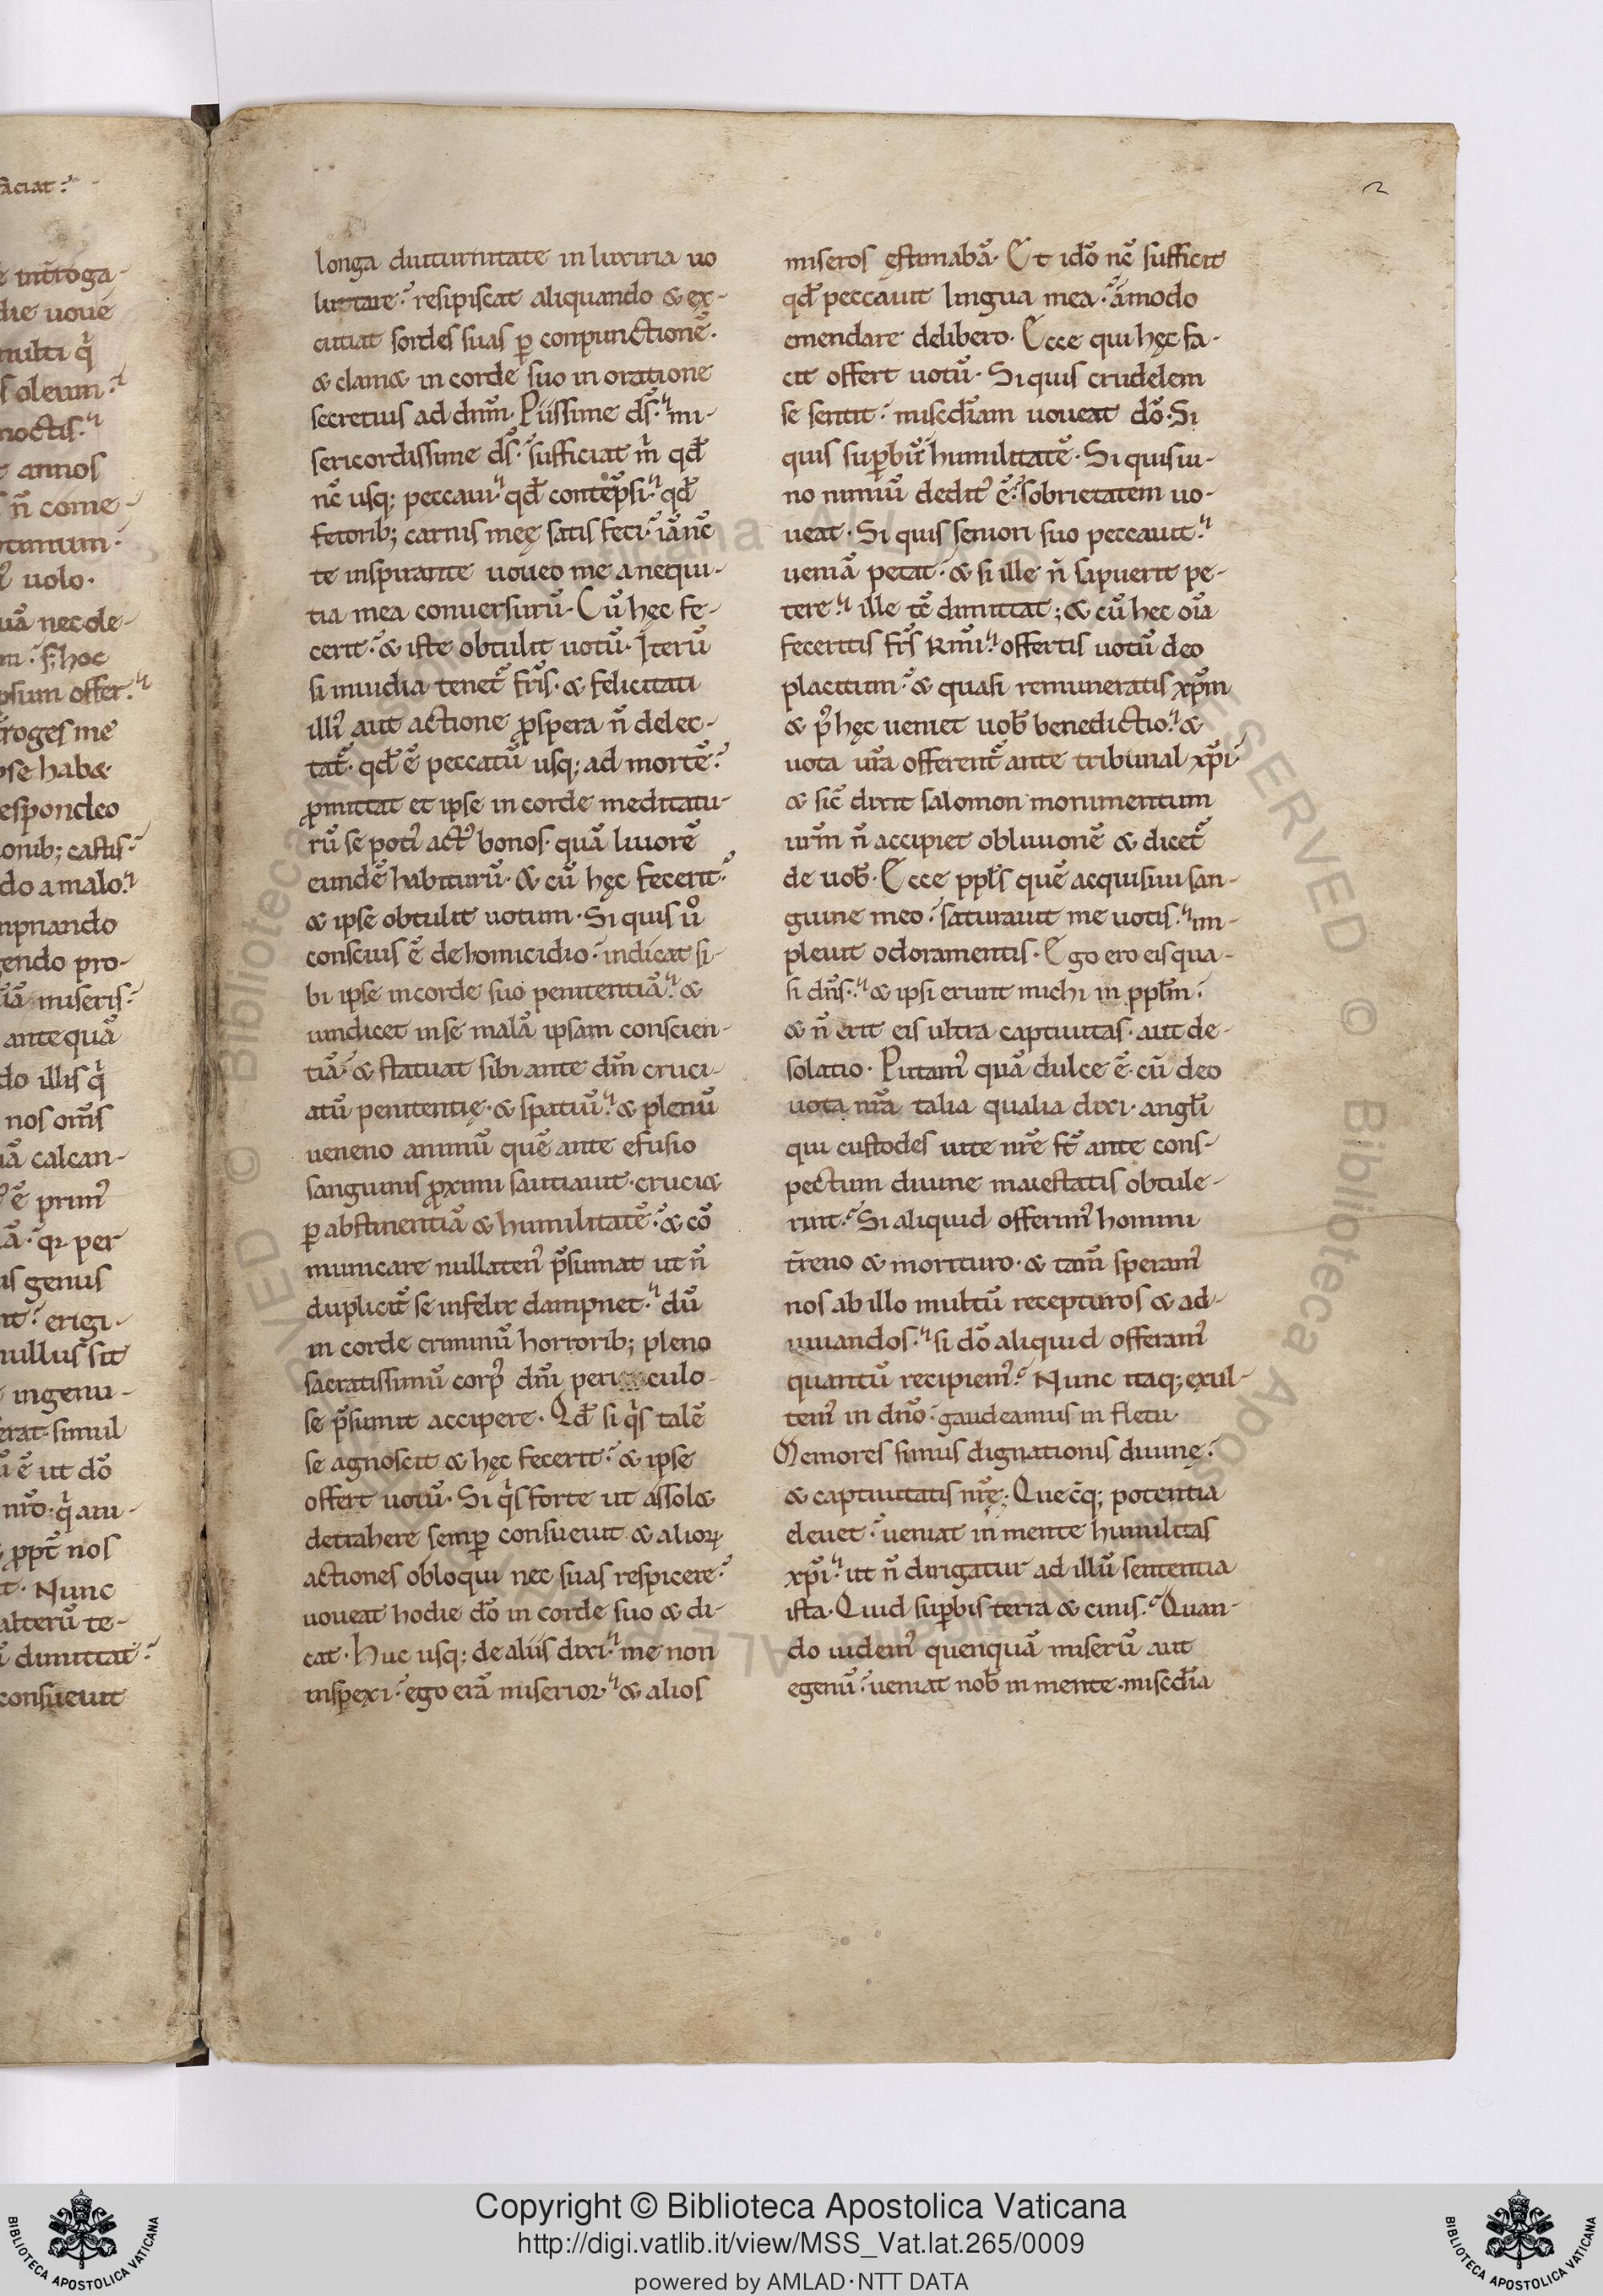 faciat
introga-
die uoue
multi q̇
s oleum.
noctis.
annos
n̄ come-
uolo.
uā nec ole-
hoc
psum offer.
troges me
pse hab&
espondeo
onib; castis.
do a malo.
mpnando
endo pro-
miseris
ante quā
do illis q̇
nos om̄s
calcan-
ē prim᾽
per
is genus
erigi-
nullus sit
ingenu-
erat simul
ē ut dō
nr̄o q̇ am-
ppt̄ nos
Nunc
alterū te-
dimittat
consueuit
2
longa diuturnitate in luxuria uo
luttare. resipiscat aliquando & ex-
cutiat sordes suas ꝑ conpunctionē.
& clam& in corde suo in oratione
secretius ad dn̄m. Piissime d̄s. mi-
sericordissime d̄s. sufficiat m̄ qd̄
nc̄ usq; peccaui. qd̄ contēpsi. qd̄
fetorib; carnis meę satis feci. iā nc̄
te inspirante uoueo me a nequi-
tia mea conuersurū. Cū hęc fe-
cerit. & iste obtulit uotū. Iterū
si inuidia tenet̄ fr̄is. & felicitati
illi᾽ aut actione ꝓspera n̄ delec-
tat̄. qd̄ ē peccatū usq; ad mortē.
ꝓmittat et ipse in corde meditatu-
rū se poti᾽ act᾽ bonos. quā liuorē
eundē habiturū. & cū hęc fecerit.
& ipse obtulit uotum. Si quis ů
conscius ē de homicidio. indicat si-
bi ipse in corde suo penitentiā. &
uindicet in se malā ipsam conscien-
tiā. & statuat sibi ante dm̄ cruci-
atū penitentię. & spatiū. & plenū
ueneno animū quē ante efusio
sanguinis ꝓximi sautiauit. cruci&
ꝑ abstinentiā & humilitatē. & cō
municare nullaten᾽ p̄sumat ut n̄
duplicit̄ se infelix dampnet. dū
in corde criminū horrorib; pleno
sacratissimū corp᾽ dn̄i periculo-
se p̄sumit accipere. Qd̄ si q̇s talē
se agnoscit & hęc fecerit. & ipse
offert uotū. Si q̇s forte ut assol&
detrahere semꝑ consueuit & alioꝝ
actiones obloqui nec suas respicere.
uoueat hodie dō in corde suo & di-
cat. Huc usq; de aliis dixi. me non
inspexi. ego erā miserior. & alios
miseros ęstimabā. Et idō nc̄ sufficit
qd̄ peccauit lingua mea. āmodo
emendare delibero. Ecce qui hęc fa-
cit offert uotū. Si quis crudelem
se sentit. misc̄diam uoueat dō. Si
quis suꝑbū humilitatē. Si quis ui-
no nimiū dedit᾽ ē. sobrietatem uo-
ueat. Si quis seniori suo peccauit.
ueniā petat. & si ille n̄ sapuerit pe-
tere. ille tē dimittat; & cū hec oīa
feceritis fr̄s k̄mi. offertis uotū deo
placitum. & quasi remuneratis xp̄m
& p᾽ hęc ueniet uob̄ benedictio. &
uota ur̄a offerent̄ ante tribunal xp̄i
& sic̄ dixit salomon monumentum
ur̄m n̄ accipiet obliuionē & dicet̄
de uob̄. Ecce ppl̄s quē acquisiui san-
guine meo. saturauit me uotis. im-
pleuit odoramentis. Ego ero eis qua-
si dn̄s. & ipsi erunt michi in ppl̄m.
& n̄ erit eis ultra captiuitas. aut de-
solatio. Putam᾽ quā dulce ē. cū deo
uota nr̄a talia qualia dixi. angl̄i
qui custodes uite nr̄e st̄ ante cons-
pectum diuine maiestatis obtule-
rint. Si aliquid offerim᾽ homini
t̄reno & morituro. & tam̄ speram᾽
nos ab illo multū recepturos & ad-
iuuandos. si dō aliquid offeram᾽
quantū recipiem᾽. Nunc itaq; exul-
tem᾽ in dn̄o. gaudeamus in fletu.
Memores simus dignationis diuinę.
& captiuitatis nr̄ę. Quēcq; potentia
eleuet. ueniat in mente humilitas
xp̄i. ut n̄ dirigatur ad illū sententia
ista. Quid suꝑbis terra & cinis. Quan-
do uidem᾽ quenquā miserū aut
egenū. ueniat nob̄ in mente. misc̄dia
Copyright © Biblioteca Apostolica Vaticana
http://digi.vatlib.it/view/MSS_Vat.lat.265/0009
powered by AMLAD·NTT DATA
BIBLIOTECA APOSTOLICA VATICANA
BIBLIOTECA APOSTOLICA VATICANA